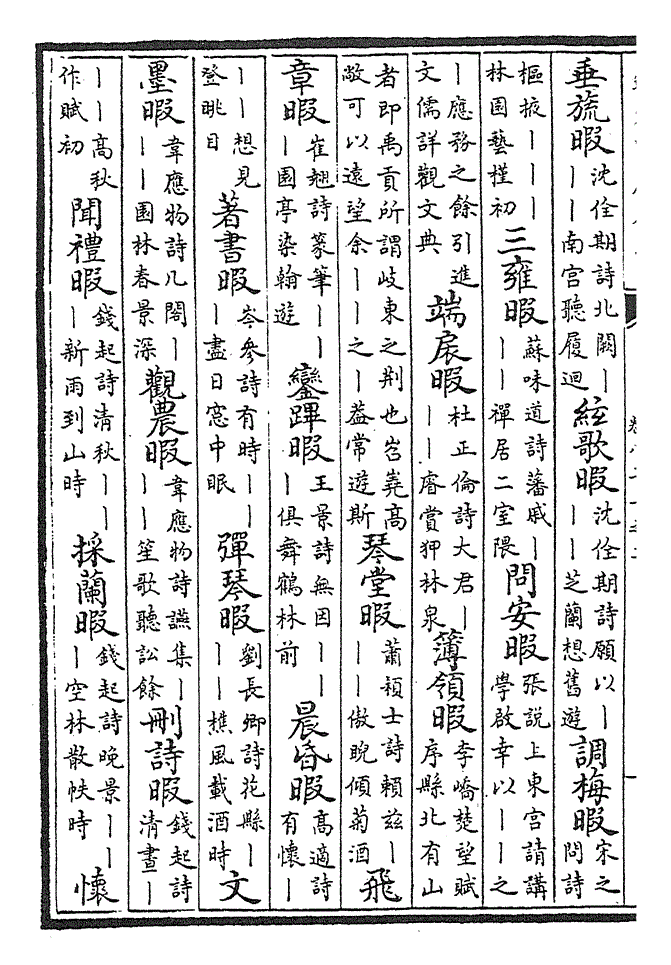 垂旒暇沈佺期詩北闕丨丨丨南宮聽履迴絃歌暇沈佺期詩願以丨丨丨芝蘭想舊遊調梅暇宋之問詩
樞掖丨丨丨林園藝槿初三雍暇蘇味道詩藩戚丨丨丨禪居二室隈問安暇張說上東宮請講學啟幸以丨丨之
丨應務之餘引進文儒詳觀文典端扆暇杜正倫詩大君丨丨丨睿賞狎林泉簿領暇李嶠楚望賦序縣北有山
者即禹貢所謂岐東之荆也岧嶤高敞可以遠望余丨丨之丨葢常遊斯琴堂暇蕭穎士詩賴兹丨丨丨傲睨傾菊酒飛
章暇崔翹詩篆筆丨丨丨園亭染翰遊鑾蹕暇王景詩無因丨丨丨俱舞鶴林前晨昏暇高適詩有懷丨
丨丨想見登眺日著書暇岑參詩有時丨丨丨盡日窓中眠彈琴暇劉長卿詩花縣丨丨丨樵風載酒時文
墨暇韋應物詩几閣丨丨丨園林春景深觀農暇韋應物詩讌集丨丨丨笙歌聽訟餘刪詩暇錢起詩清晝丨
丨丨高秋作賦初聞禮暇錢起詩清秋丨丨丨新雨到山時採蘭暇錢起詩晚景丨丨丨空林散帙時懷